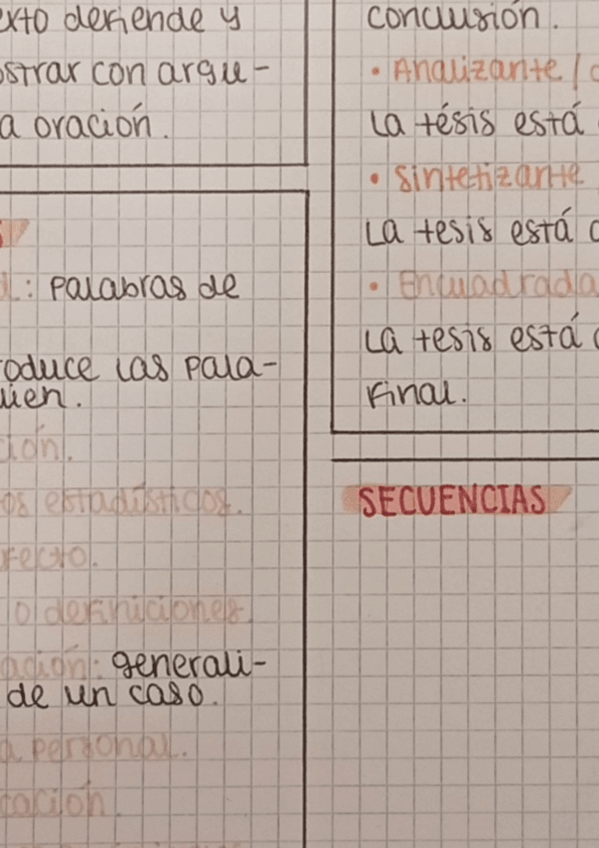 exto defiende y
ostrar con argu-
a oración.
L: palabras de
oduce las pala-
uien.
ción.
os estadísticos.
fecto.
o definiciones
ación: generali-
de un caso.
a personal.
cación
conclusión.
• Analizante /
La tésis está
• Sintetizante
La tesis está
• Encuadrada
La tesis está
Final.
SECUENCIAS